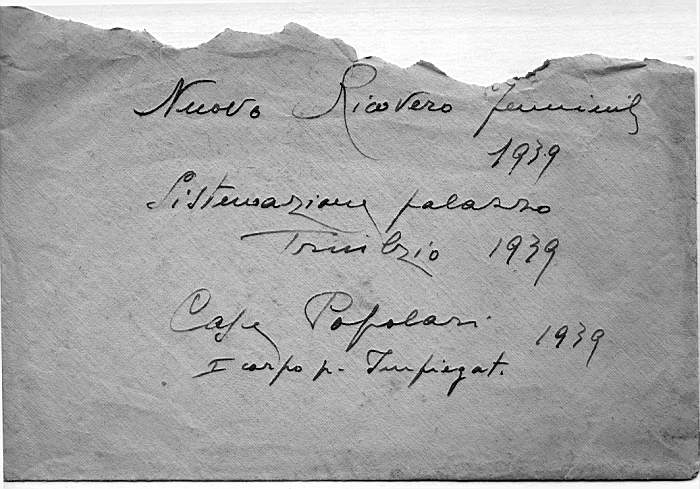 Nuovo Ricovero Femminile
1939
Sistemazione palazzo
Trivulzio 1939
Case Popolari 1939
I corpo p. Impiegat.